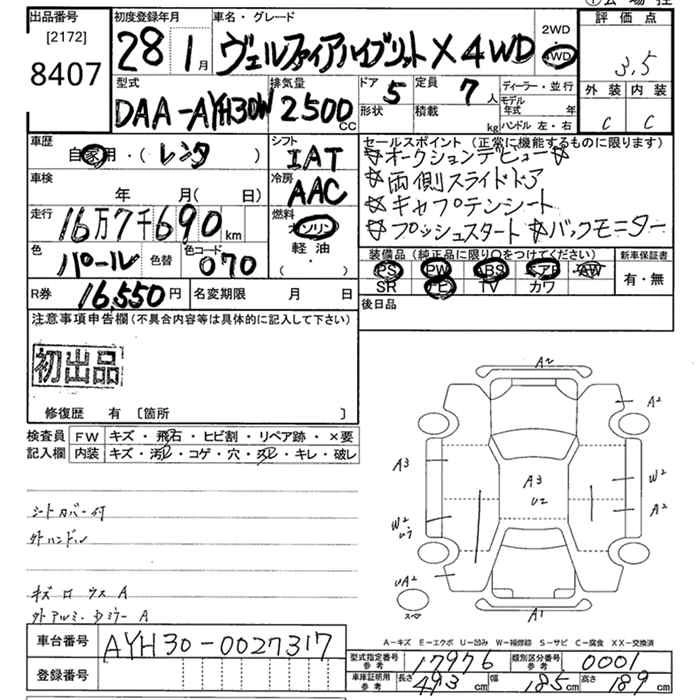 出品番号
[2172]
8407
初度登録年月
28 / 1月
車名・グレード
ヴェルファイアハイブリットX 4WD
2WD
4WD
評価点
3.5
外装 内装
C C
型式
DAA-AYH30W
排気量
2500 CC
ドア
5
形状
定員
7人
積載
kg
ディーラー・並行
モデル年式 年
ハンドル 左・右
車歴
自家用・(レンタ )
シフト
IAT
車検
年 月( 日)
冷房
AAC
走行
16万7千690 km
燃料
ガソリン
軽油
( ・ )
色
パール
色替
色コード
070
R券
16,550円
名変期限 月 日
セールスポイント (正常に機能するものに限ります)
☆オークションデビュー☆
☆両側スライドドア
☆キャプテンシート
☆プッシュスタート ☆バックモニター
装備品(純正品に限り○をつけてください)
PS PW ABS エアB AW
SR ナビ TV カワ
新車保証書
有・無
後日品
注意事項申告欄(不具合内容等は具体的に記入して下さい)
初出品
修復歴 有 [箇所 ]
検査員
記入欄
FW キズ・飛石・ヒビ割・リペア跡・×要
内装 キズ・汚レ・コゲ・穴・スレ・キレ・破レ
シートカバー付
外ハンドル
A2
A2
A3
A3
U2
W2
A2
W2
UA2
スペア
A1
A-キズ E-エクボ U-凹み W-補修跡 S-サビ C-腐食 XX-交換済
車台番号
AYH30-0027317
登録番号
型式指定番号
参考
17976
類別区分番号
参考
0001
車庫証明用
参考
長さ 493cm 幅 185cm 高さ 189cm